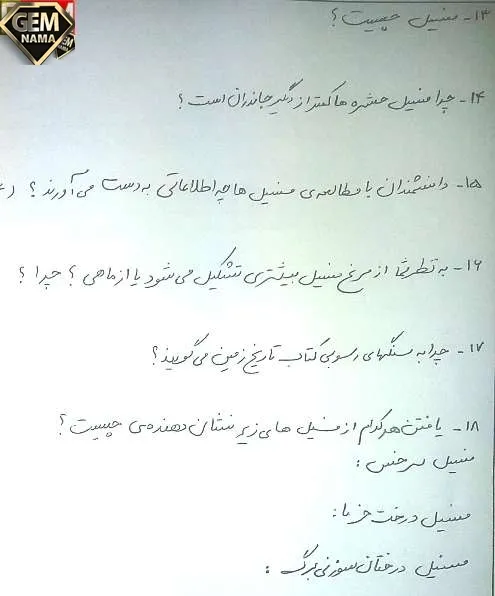 GEM
NAMA
۱۳- فسیل چیست؟
۱۴- چرا فسیل حشره ها کمتر از دیگر جانداران است؟
۱۵- دانشمندان با مطالعه‌ی فسیل ها چه اطلاعاتی به دست می آورند؟
۱۶- به نظر شما از مرغ فسیل بیشتری تشکیل می شود یا از ماهی؟ چرا؟
۱۷- چرا به سنگهای رسوبی کتاب تاریخ زمین می گویند؟
۱۸- یافتن هر کدام از فسیل های زیر نشان دهنده‌ی چیست؟
فسیل سرخس:
فسیل درخت خرما:
فسیل درختان سوزنی برگ: